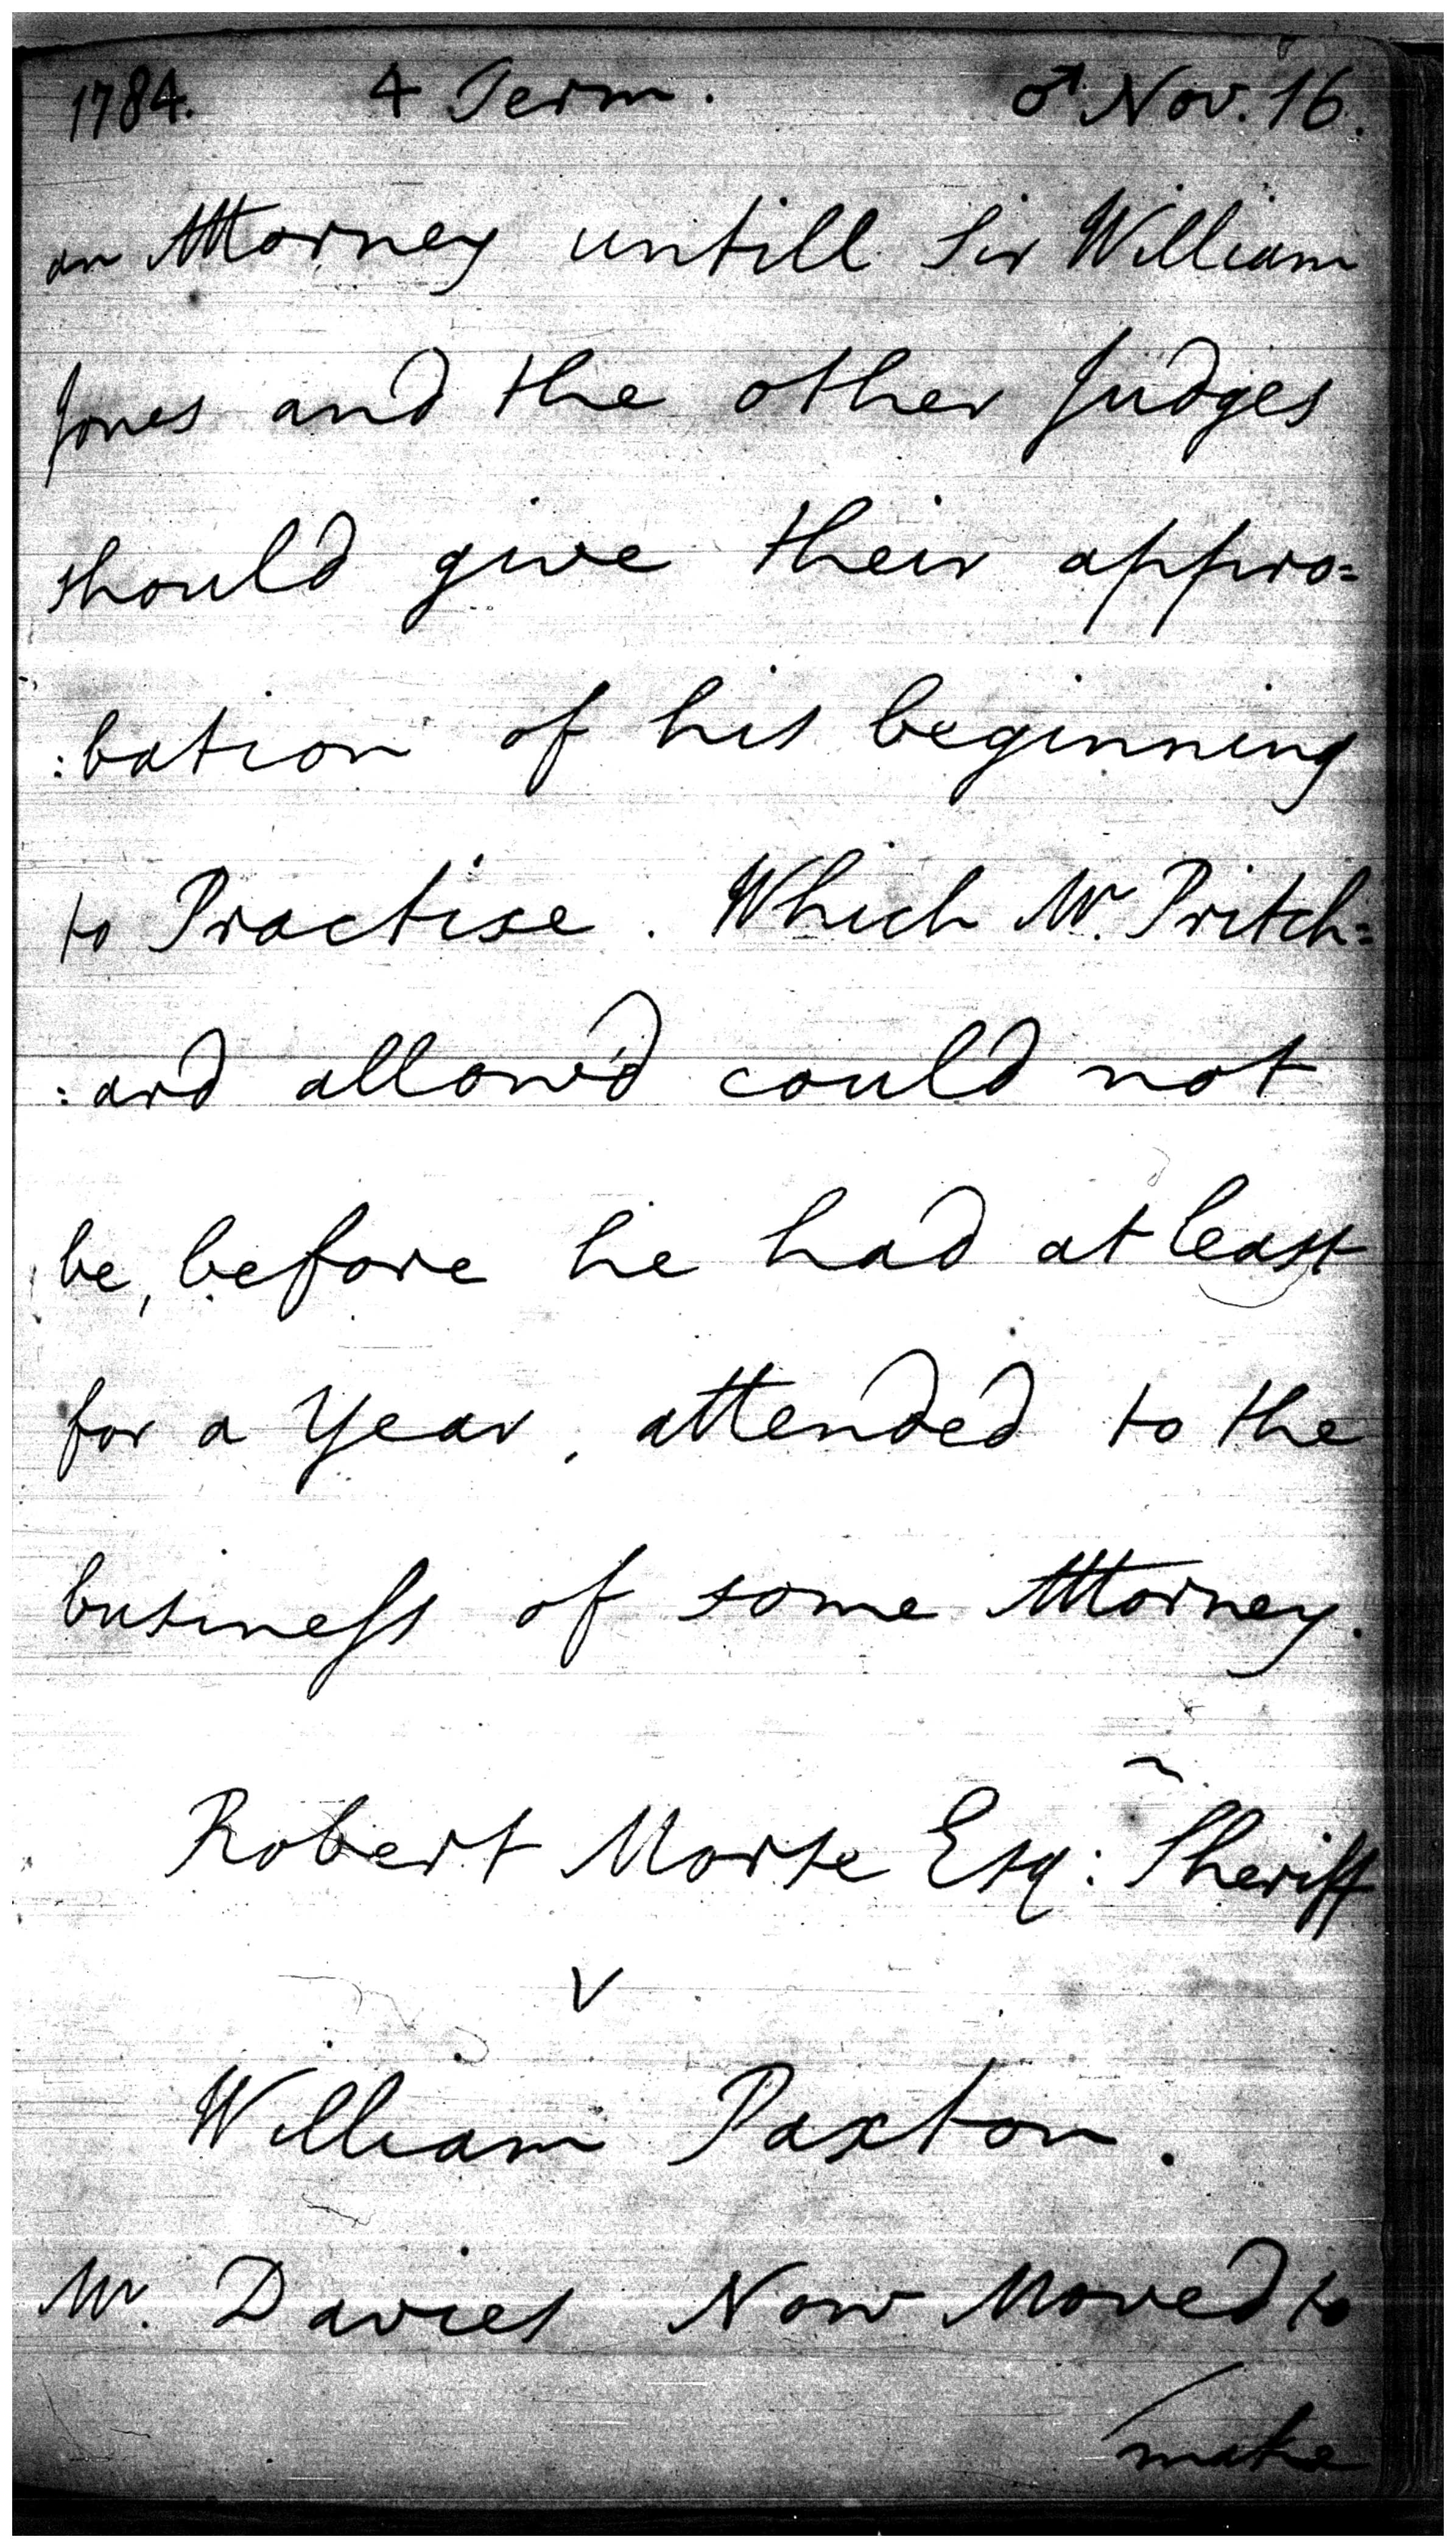 1784. 4 Term. ♂ Nov. 16.
an Attorney untill Sir William
Jones and the other Judges
should give their appro=
:bation of his beginning
to Practise. Which Mr. Pritch=
:ard allow'd could not
be, before he had at least
for a Year, attended to the
business of some Attorney.
Robert Morse Esq: Sheriff
v
William Paxton.
Mr. Davies Now Moved to
make